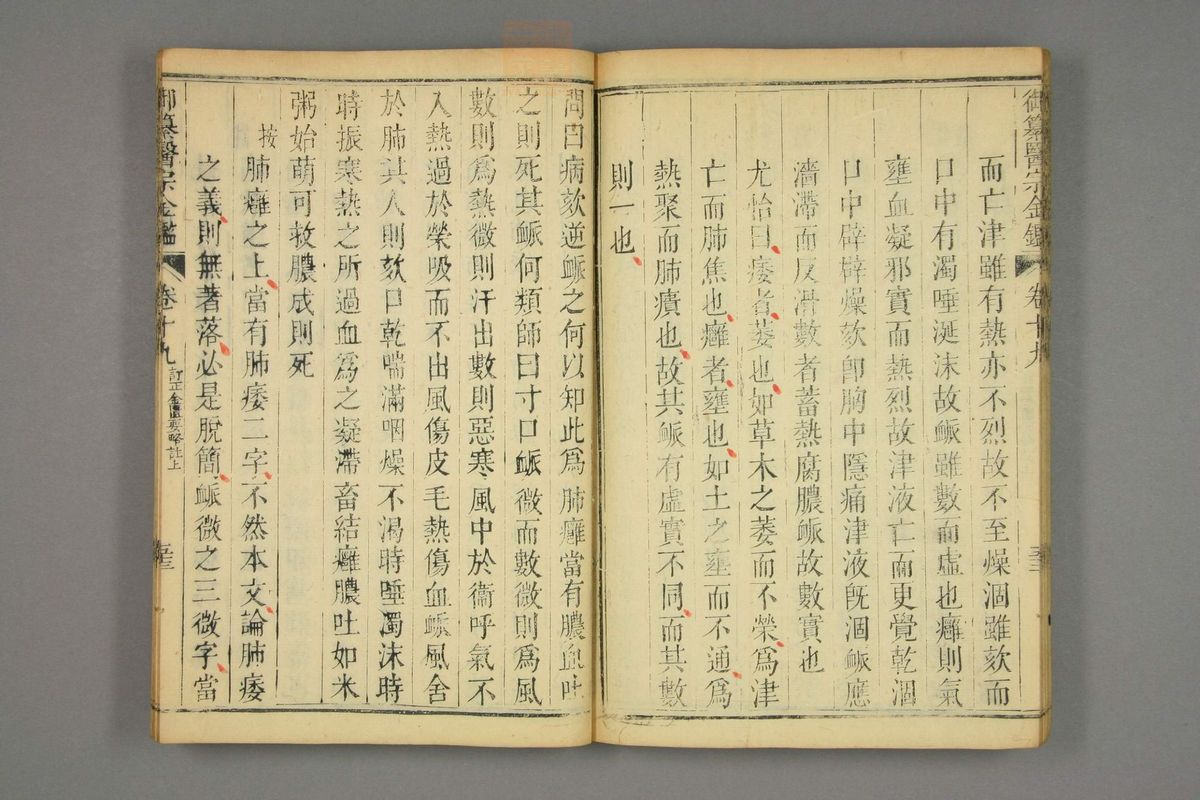 御纂醫宗金鑑 卷十九
而亡津雖有熱亦不烈故不至燥涸雖欬而
口中有濁唾涎沫故𧖴雖數而虛也癰則氣
壅血凝邪實而熱烈故津液亡而更覺乾涸
口中辟辟燥欬卽胸中隱痛津液旣涸𧖴應
濇滯而反滑數者蓄熱腐膿𧖴故數實也
尤怡曰痿者萎也如草木之萎而不榮爲津
亡而肺焦也癰者壅也如土之壅而不通爲
熱聚而肺㿉也故其𧖴有虛實不同而其數
則一也
問曰病欬逆𧖴之何以知此爲肺癰當有膿血吐
之則死其𧖴何類師曰寸口𧖴微而數微則爲風
數則爲熱微則汗出數則惡寒風中於衞呼氣不
入熱過於榮吸而不出風傷皮毛熱傷血𧖴風舍
於肺其人則欬口乾喘滿咽燥不渴時唾濁沫時
時振寒熱之所過血爲之凝滯畜結癰膿吐如米
粥始萌可救膿成則死
按肺癰之上當有肺痿二字不然本文論肺痿
之義則無著落必是脫簡𧖴微之三微字當
御纂醫宗金鑑 卷十九 訂正金匱要略註上